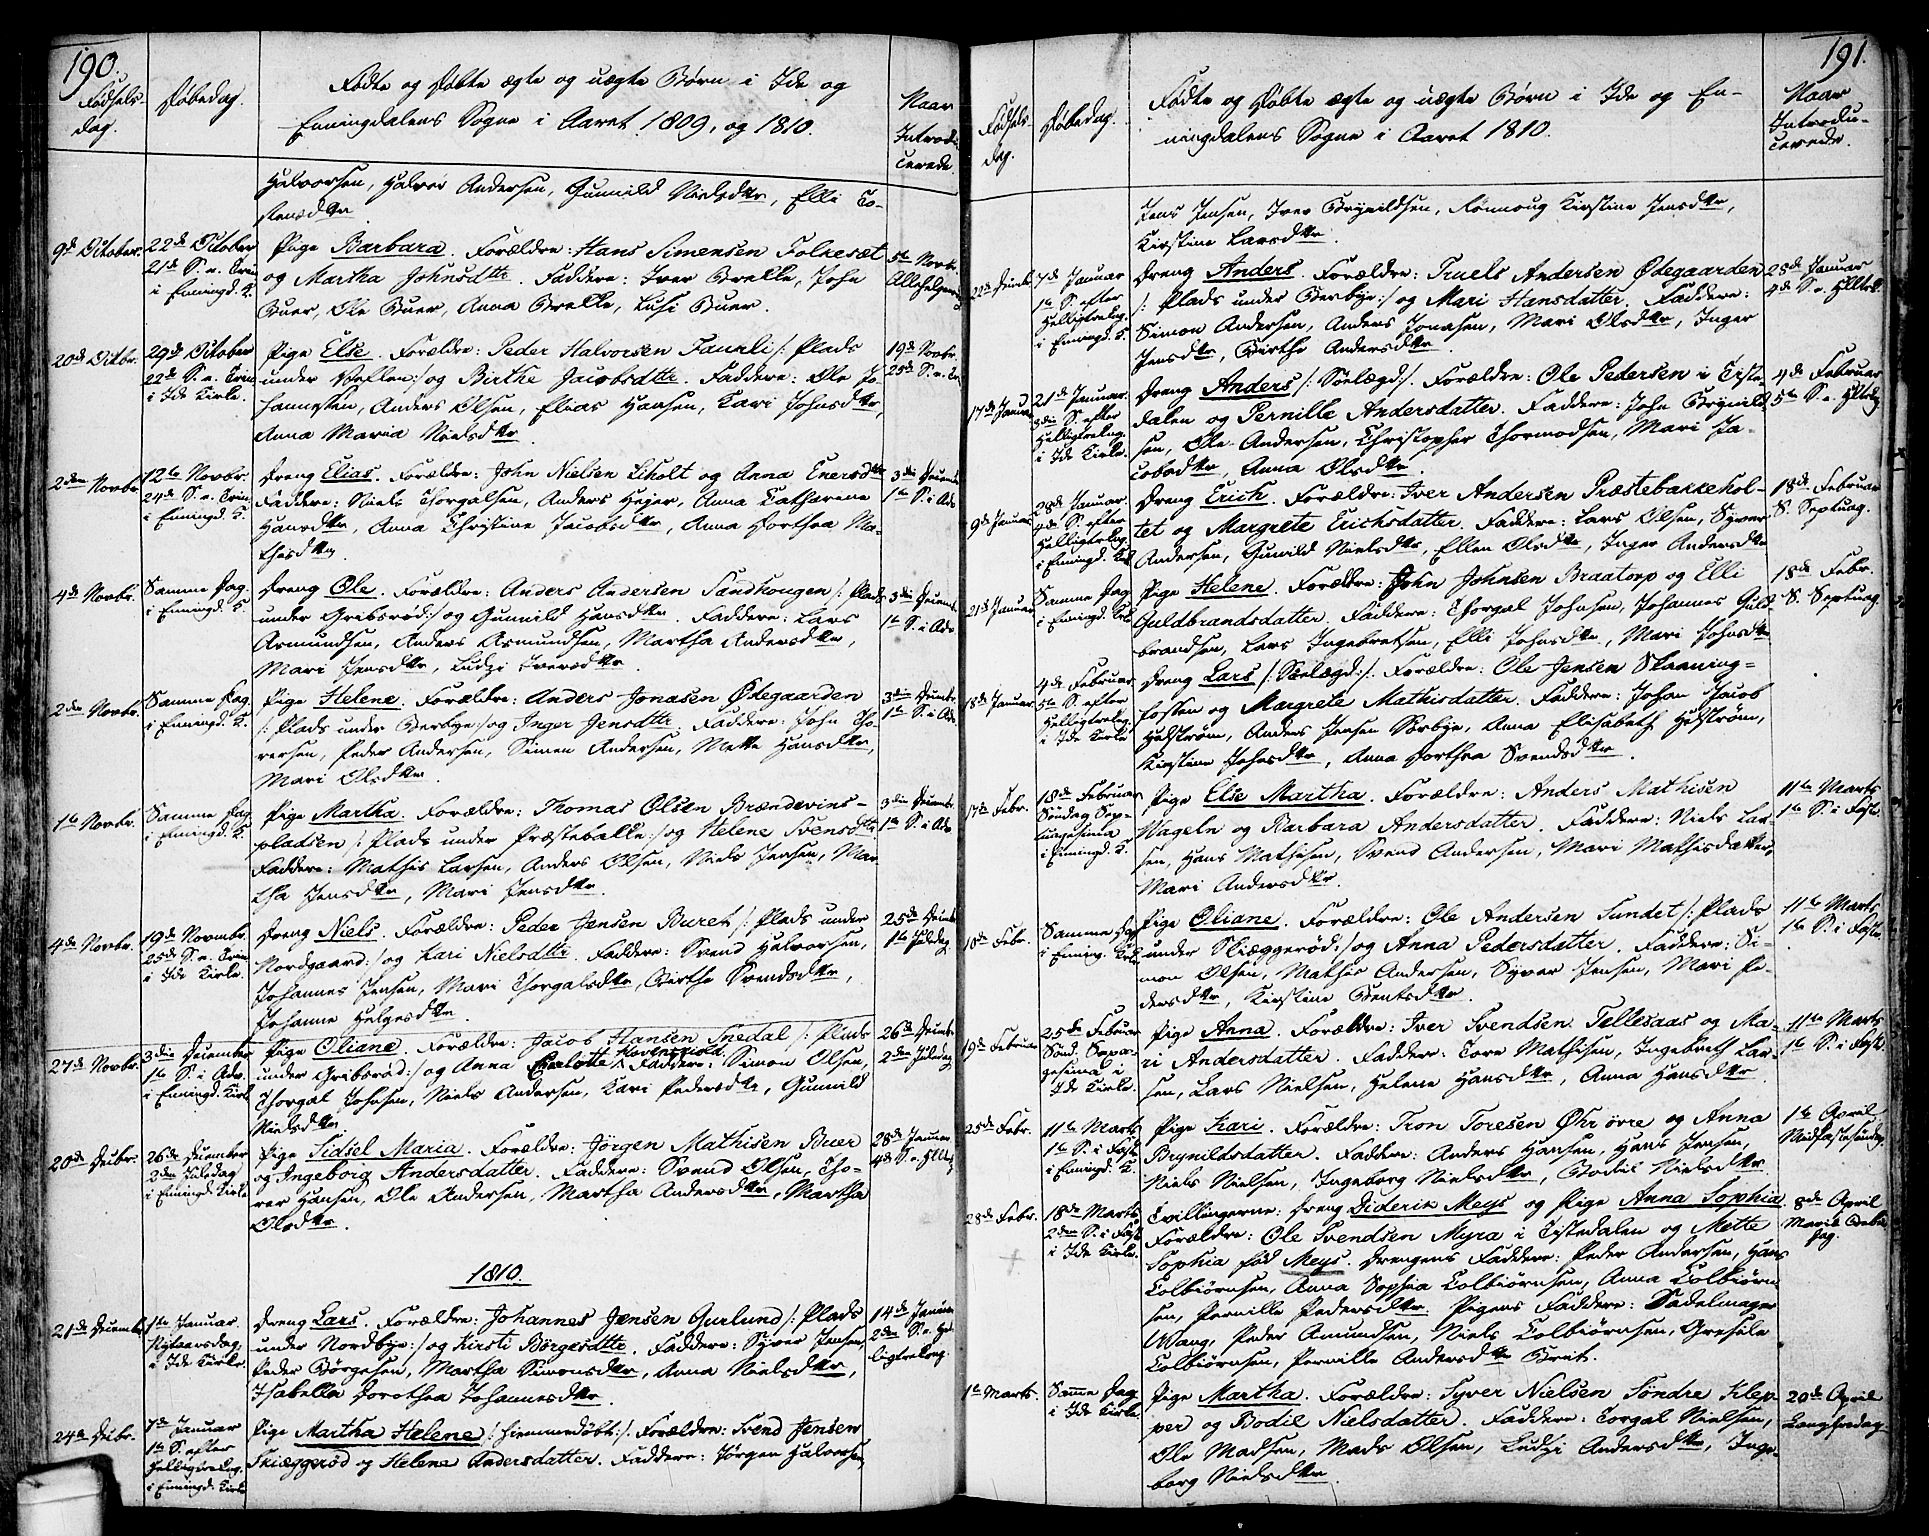 190.
Fødsels-
dag.
Døbedag.
Fødte og Døbte ægte og uægte Børn i Ide og
Enningdalens Sogne i Aaret 1809, og 1810.
Naar
Introdu-
cerede.
Halvorsen, Halvor Andersen, Gunnild Nielsdtr, Elli To-
stensdtr
9de October.
22de October
21de S. e. Trin
i Enningd. K.
Pige Barbara. Forældre: Hans Simensen Folkesæt
og Martha Johnsdttr. Faddere: Iver Brekke, John
Buer, Ole Buer, Anna Brekke, Lusi Buer.
5te Novbr.
Allehelgens
20de Octbr.
29de October
22de S. e. Trin
i Ide Kirke.
Pige Else. Forældre: Peder Halvorsen Taurli /: Plads
under Veflen :/ og Birthe Jacobsdttr. Faddere: Ole Jo-
hannesen, Anders Olsen, Elias Hansen, Kari Johnsdtr,
Anna Maria Nielsdtr.
19de Novbr.
25de S. e. Tr.
2den Novbr.
12te Novbr.
24de S. e. Trin
i Enningd. K.
Dreng Elias. Forældre: John Nielsen Liholt og Anna Enersdttr
Faddere: Niels Thorgalsen, Anders Hejer, Anna Catharine
Hansdtr, Anna Christine Jacobsdtr, Anna Dorthea Ma-
thesdtr.
3die Decemb
1te S. i Adv
4de Novbr.
Samme Dag
i Enningd. K.
Dreng Ole. Forældre: Anders Andersen Sandhougen /: Plads
under Gribsrød :/ og Gunnild Hansdtr. Faddere: Lars
Asmundsen, Anders Asmundsen, Martha Andersdtr,
Mari Jensdtr, Ludzi Iversdtr.
3die Decemb.
1te S. i Adv
2den Novbr.
Samme Dag
i Enningd. K.
Pige Helene. Forældre: Anders Jonasen Ødegaarden
/: Plads under Berbye :/ og Inger Jensdttr. Faddere: John To-
rersen, Peder Andersen, Simen Andersen, Mette Hansdtr,
Mari Olsdtr.
3die Decembr
1te S. i Adv
1te Novbr.
Samme Dag
i Enningd. K.
Pige Martha. Forældre: Thomas Olsen Brændevins-
pladsen /: Plads under Præstebakke :/ og Helene Svensdttr
Faddere: Mathis Larsen, Anders Olsen, Niels Jensen, Mar-
tha Jensdtr, Mari Jensdtr.
3die Decembr.
1te S. i Adv
4de Novbr.
19de Novmbr.
25de S. e. Trin
i Ide Kirke.
Dreng Niels. Forældre: Peder Jensen Buret /: Plads under
Nordgaard :/ og Kari Nielsdttr. Faddere: Svend Halvorsen,
Johannes Jensen, Mari Thorgalsdtr, Birthe Svendsdtr,
Johanne Helgesdtr.
25de Decmb
1te Juledag
27de Novbr.
3die December
1te S. i Adv.
i Enningd. Kirke
Pige Oliane. Forældre: Jacob Hansen Snedal /: Plads
under Gribsrød :/ og Anna Charlotte Faddere: Simon Olsen,
Thorgal Johnsen, Niels Andersen, Kari Pedersdtr, Gunnild
Nielsdtr.
26de Decemb
2den Juledag
20de Decbr.
26de December
2den Juledag
i Enningd. Kirke
Pige Sidsel Maria. Forældre: Jørgen Mathisen Buer
og Ingeborg Andersdatter. Faddere: Svend Olsen, Tho-
rer Hansen, Ole Andersen, Martha Andersdtr, Martha
Olsdtr.
28de Januar
4de S. e. Hlltr
1810.
21de Decemb
1te Januar.
Nytaarsdag,
i Ide Kirke.
Dreng Lars. Forældre: Johannes Jensen Gurlund /: Plads
under Nordbye :/ og Kirsti Børgesdttr. Faddere: Syver Jensen,
Peder Børgesen, Martha Simonsdtr, Anna Nielsdtr,
Isabella Dorothea Johannesdtr.
14de Januar
2den S. e. Hel-
ligtrekong.
24de Decbr.
7de Januar
1te S. efter
Helligtrekong.
i Enningd. Kirke
Pige Martha Helene /: Hiemmedøbt :/. Forældre: Svend Jensen
Skiæggerød og Helene Andersdatter. Faddere: Jørgen Halvorsen,
191.
Fødsels-
dag.
Døbedag.
Fødte og Døbte ægte og uægte Børn i Ide og En-
ningdalens Sogne i Aaret 1810.
Naar
Introdu-
cerede.
Jens Jensen, Iver Brynildsen, Rønnoug Kirstine Jensdtr,
Kirstine Larsdtr.
22de Decmb
7de Januar
1te S. efter
Helligtrekong.
i Enningd. K.
Dreng Anders. Forældre: Truels Andersen Ødegaarden
/: Plads under Berbye :/ og Mari Hansdatter. Faddere:
Simon Andersen, Anders Jonasen, Mari Olsdtr, Inger
Jensdtr, Birthe Andersdtr.
28de Januar
4de S. e. Hlltrk.
17de Januar
21de Januar.
3die S. efter
Helligtrekong.
i Ide Kirke.
Dreng Anders /: Sørlægd :/. Forældre: Ole Pedersen i Tiste-
dalen og Pernille Andersdatter. Faddere: John Brynild-
sen, Ole Andersen, Christopher Thormodsen, Mari Ja-
cobsdtr, Anna Olsdtr.
4de Februar
5te S. e. Hltrkg
9de Januar
28de Januar.
4de S. efter
Helligtrekong.
i Enningd. Kirke
Dreng Erich. Forældre: Iver Andersen Præstebakkehol-
tet og Margrete Erichsdatter. Faddere: Lars Olsen, Syver
Andersen, Gunild Nielsdtr, Ellen Olsdtr, Inger Andersdtr
18de Februar
S. Septuag.
21de Januar
Samme Dag
i Enningd. Kirke
Pige Helene. Forældre: John Johnsen Braatorp og Elli
Guldbrandsdatter. Faddere: Thorgal Johnsen, Johannes Guld-
brandsen, Lars Ingebretsen, Elli Johnsdtr, Mari Johnsdtr
18de Febr.
S. Septuag.
18de Januar.
4de Februar
5te S. efter
Helligtrekong.
i Ide Kirke
Dreng Lars /: Sørlægd :/. Forældre: Ole Jensen Skaaning-
fosten og Margrete Mathisdatter. Faddere: Johan Jacob
Helstrøm, Anders Jensen Sørbye, Anna Elisabeth Helstrøm,
Kirstine Johnsdtr, Anna Dorthea Svendsdtr.
17de Febr.
18de Februar
Søndag Sep-
tuagesima
i Enningd. K.
Pige Else Martha. Forældre: Anders Mathisen
Nageln og Barbara Andersdatter. Faddere: Niels Lar-
sen, Hans Mathisen, Svend Andersen, Mari Mathisdatter,
Mari Andersdtr.
11te Marts
1te S. i Fast.
18de Febr.
Samme Dag
i Enning. Kirke
Pige Oliane. Forældre: Ole Andersen Sundet /: Plads
under Skiæggerød :/ og Anna Pedersdatter. Faddere: Si-
mon Olsen, Mathis Andersen, Syver Jensen, Mari Pe-
dersdtr, Kirstine Bentsdtr.
11te Marts
1te S. i Faste.
19de Februar
25de Februar
Sønd. Sexa-
gesima i
Ide Kirke.
Pige Anna. Forældre: Iver Svendsen Tellesaas og Ma-
ri Andersdatter. Faddere: Tore Mathisen, Ingebreth Lar-
sen, Lars Nielsen, Helene Hansdtr, Anna Hansdtr.
11te Marts
1te S. i Fast.
25de Febr.
11te Marts
1te S. i Fast
i Enningd. K.
Pige Kari. Forældre: Tron Toresen Øhr øvre og Anna
Brynildsdatter. Faddere: Anders Hansen, Hans Jensen,
Niels Nielsen, Ingeborg Nielsdtr, Bodil Nielsdtr.
1te April
Midfastesøndag
28de Febr.
18de Marts
2den S. i Fast
i Ide Kirke.
Tvillingerne: Dreng Diderik Meys og Pige Anna Sophia.
Forældre: Ole Svendsen Myra i Tistedalen og Mette
Sophia fød Meys. Drengens Faddere: Peder Andersen, Hans
Colbiørnsen, Anna Sophia Colbiørnsen, Anna Colbiørn-
sen, Pernille Pedersdtr. Pigens Faddere: Sadelmager
Wang, Peder Amundsen, Niels Colbiørnsen, Gresele
Colbiørnsen, Pernille Andersdtr Breit.
8de April
Mariæ Bebu
Dag.
1te Marts
Samme Dag
i Ide Kirke.
Pige Martha. Forældre: Syver Nielsen Søndre Klep-
per og Bodil Nielsdatter. Faddere: Torgal Nielsen,
Ole Madsen, Mads Olsen, Ludzi Andersdtr, Inge-
borg Nielsdtr.
20de April
Langfredag